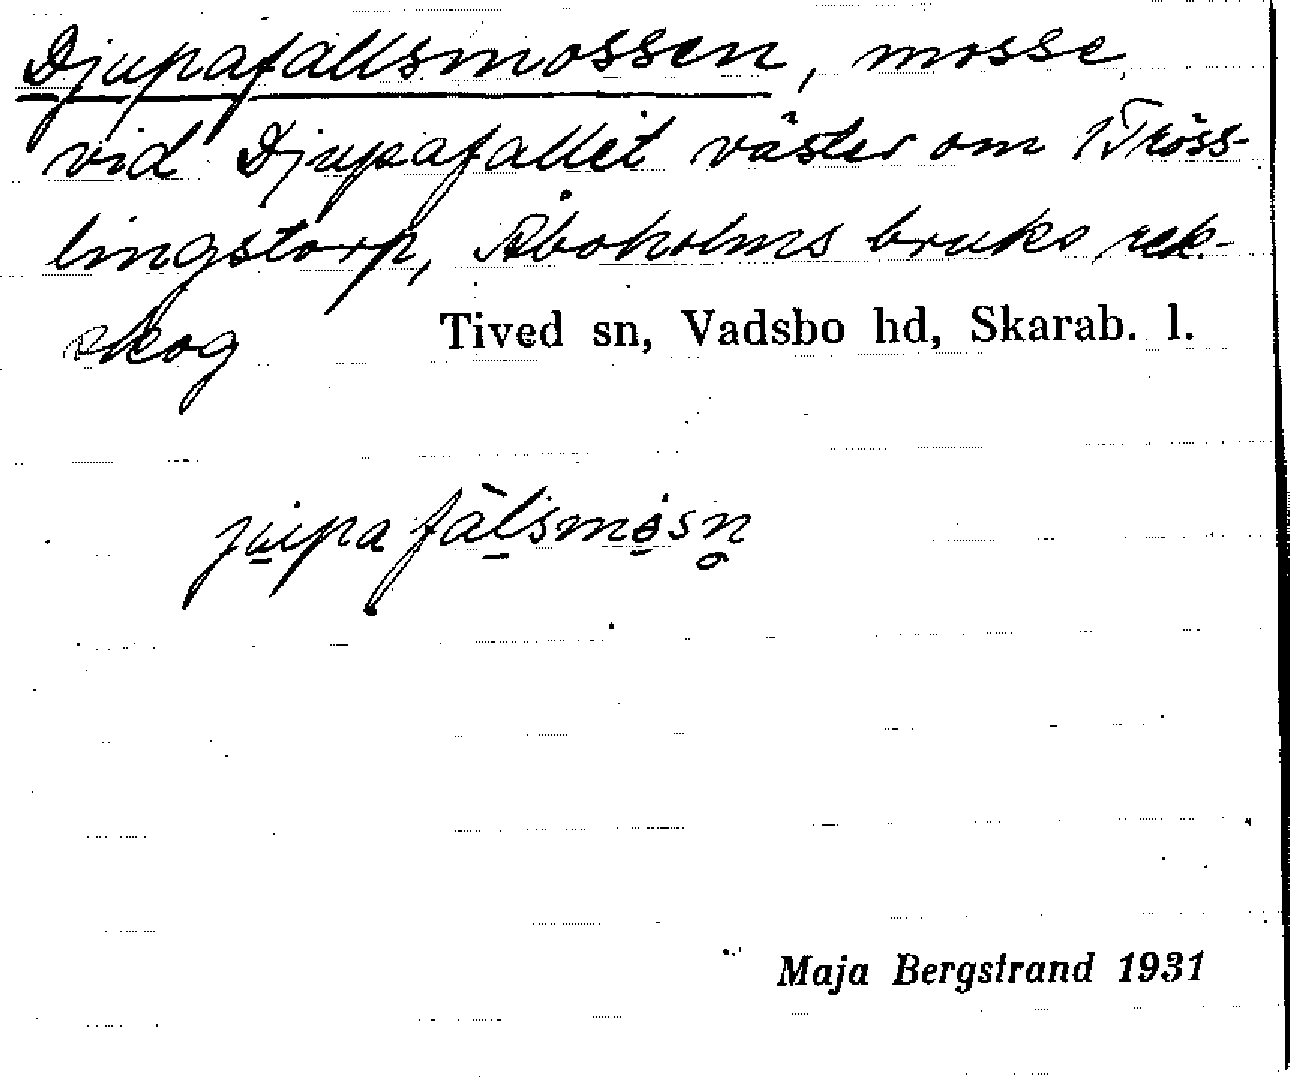 Djupafallsmossen, mosse
vid Djupafallet väster om 1 Tröss-
lingstorp, Åboholms bruks rek.
skog Tived sn, Vadsbo hd, Skarab. l.
jupafàlsmosn
Maja Bergstrand 1931